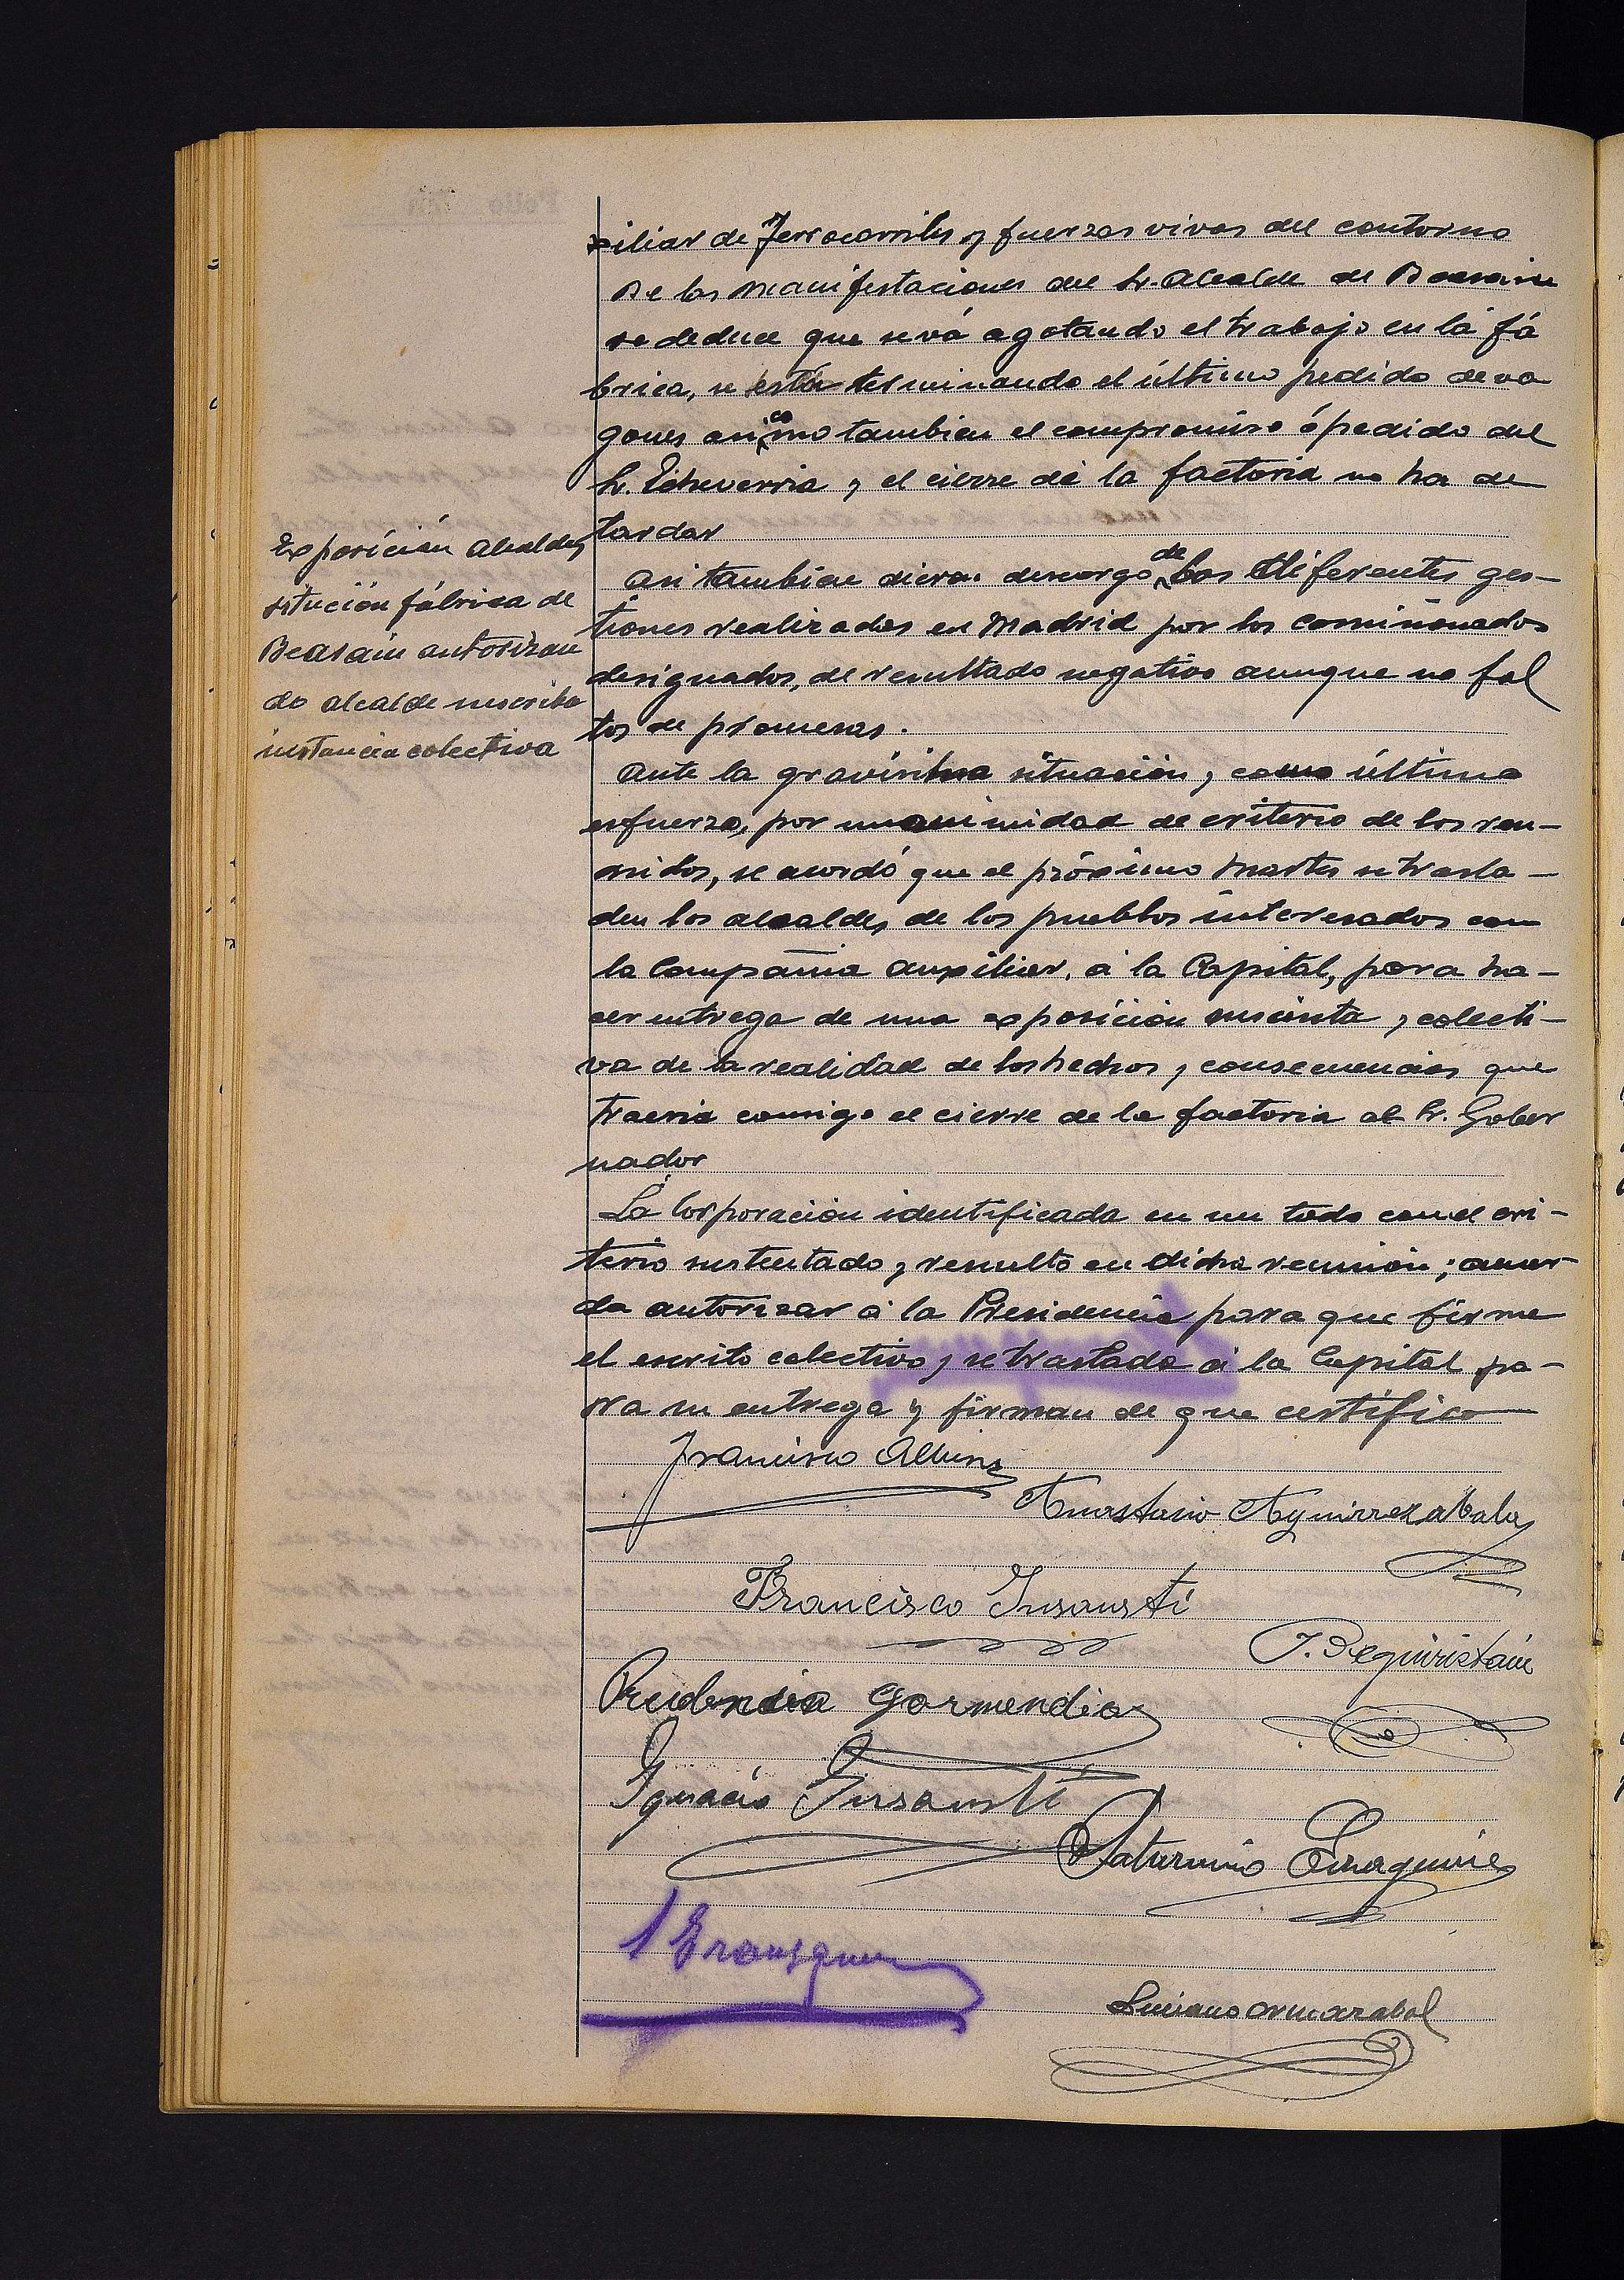 xiliar de Ferrocarriles y fuerzas vivas del contorno
De las manifestaciones del Sr. Alcalde de Beasain
se deduce que se vá agotando el trabajo en la fá
brica, se está terminando el último pedido de va
gones asi como tambien el compromiso ó pedido del
Sr. Echeverria y el cierre de la factoria no ha de
tardar
Exposición Alcaldes
situción fábrica de
Beasain autorizan
do alcalde suscriba
instancia colectiva
Asi tambien dieron descargo de las diferentes ges-
tiones realizadas en Madrid por los comisionados
designados, de resultado negativo aunque no fal
tos de promesas.
Ante la gravísima situación, como última
esfuerzo, por unanimidad de criterio de los reu-
nidos, se acordó que el próximo martes se trasla-
den los alcaldes de los pueblos interesados con
la Compañia auxiliar, á la Capital, para ha-
cer entrega de una exposición sucinta y colecti-
va de la realidad de los hechos y consecuencias que
traeria consigo el cierre de la factoria al Sr. Gober
nador
La Corporación identificada en un todo con el cri-
terio sustentado y resuelto en dicha reunión; acuer-
da autorizar á la Presidencia para que firme
el escrito colectivo y se traslade á la Capital pa-
ra su entrega y firman de que certifico
Francisco
Anastasio Aguirrezabala
Francisco Insausti
J. Beguiristain
Prudencio Garmendia
Ignacio Insausti
Saturnino
Luciano Ormazabal